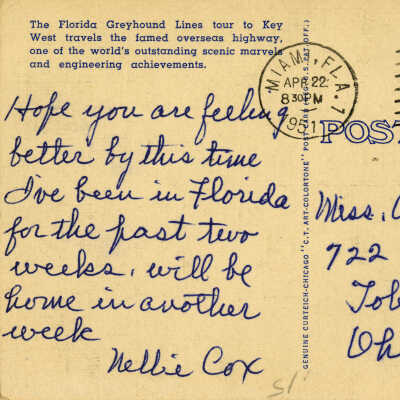 The Florida Greyhound Lines tour to Key
West travels the famed overseas highway,
one of the world's outstanding scenic marvels
and engineering achievements.
MIAMI, FLA. 7
APR 22
8 30 PM
1951
Hope you are feeling
better by this time
I've been in Florida
for the past two
weeks, will be
home in another
week
Nellie Cox
GENUINE CURTEICH-CHICAGO "C.T. ART-COLORTONE" POST CARD (REG. U.S. PAT. OFF.)
POST
Miss.
722
Tob
Oh
51